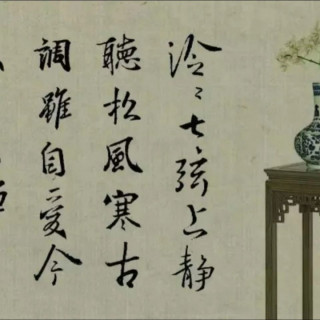 泠〻七弦上靜
聽松風寒古
調雖自愛今